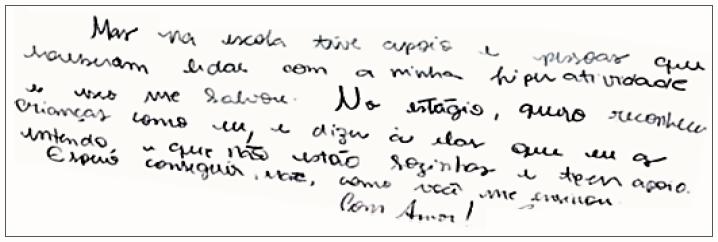 Mas na escola tive apoio e pessoas que
souberam lidar com a minha hiperatividade
e isso me salvou. No estágio, quero reconhecer
crianças como eu, e dizer à elas que eu as
entendo, e que não estão sozinhas e tem apoio.
Espero conseguir, como você me ensinou.
Com Amor!